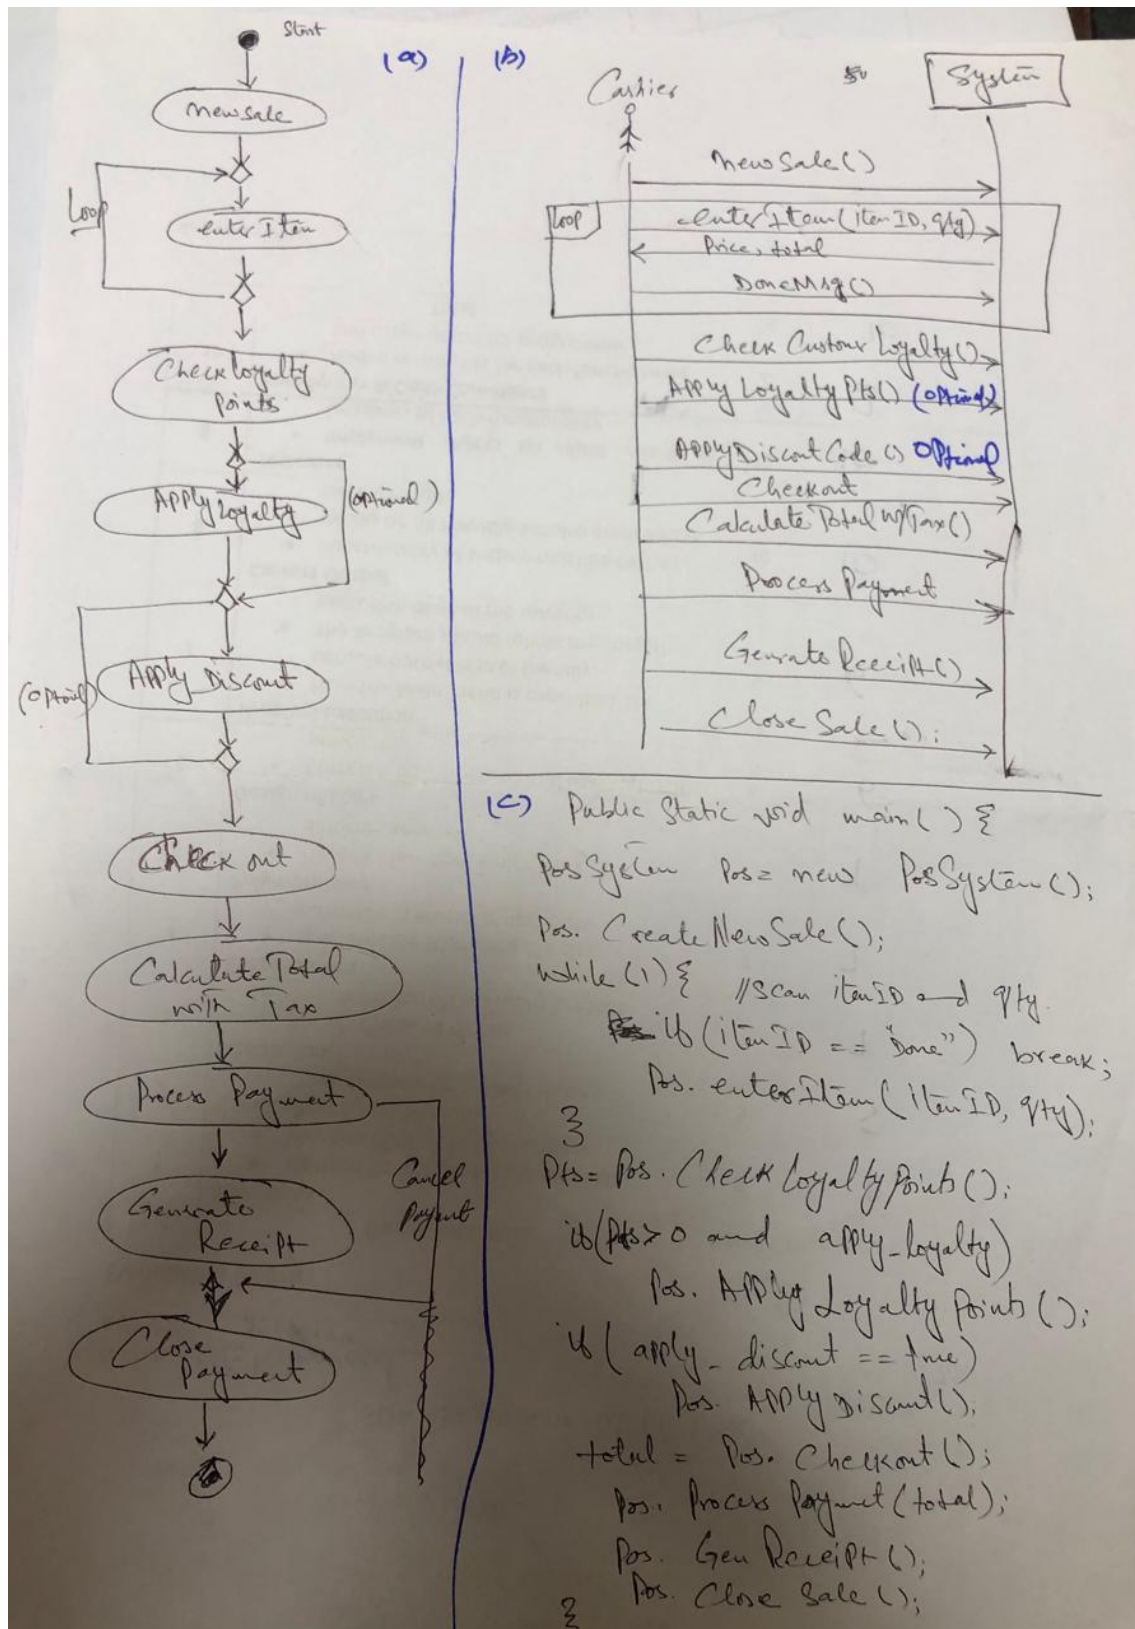 Start
(a)
new sale
Loop
enter Item
Check loyalty
points
Apply Loyalty
(optional)
Apply Discount
(optional)
Check out
Calculate Total
with Tax
Process Payment
Cancel
Payment
Generate
Receipt
Close
Payment
(b)
Cashier
System
new Sale()
Loop
enter Item (item ID, qty)
Price, total
DoneMsg()
Check Customer Loyalty()
Apply Loyalty Pts() (optional)
Apply Discount Code () Optional
Checkout
Calculate Total w/Tax()
Process Payment
Generate Receipt()
Close Sale();
(c) Public Static void main() {
Pos System Pos = new Pos System();
Pos. Create New Sale();
while (1) { //Scan item ID and qty.
if (item ID == "Done") break;
Pos. enter Item (item ID, qty);
}
Pts = Pos. Check Loyalty Points();
if (Pts > 0 and apply_loyalty)
Pos. Apply Loyalty Points();
if (apply_discount == true)
Pos. Apply Discount();
total = Pos. Checkout();
Pos. Process Payment (total);
Pos. Gen Receipt();
Pos. Close Sale();
}